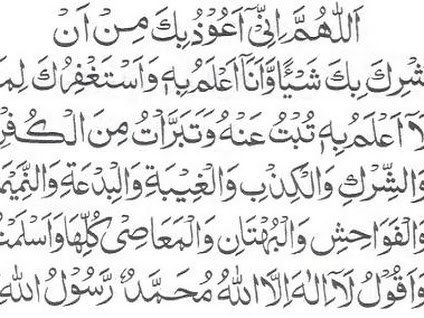 اَللّٰهُمَّ اِنِّیْۤ اَعُوْذُ بِكَ مِنْ اَنْ
شْرِكَ بِكَ شَيْئًا وَّاَنَا اَعْلَمُ بِهٖ وَاَسْتَغْفِرُكَ لِمَا
لَاۤ اَعْلَمُ بِهٖ تُبْتُ عَنْهُ وَتَبَرَّاْتُ مِنَ الْكُفْرِ
وَالشِّرْكِ وَالْكِذْبِ وَالْغِيْبَةِ وَالْبِدْعَةِ وَالنَّمِيْمَ
وَالْفَوَاحِشِ وَالْبُهْتَانِ وَالْمَعَاصِیْ كُلِّهَا وَاَسْلَمْتُ
وَاَقُوْلُ لَاۤ اِلٰهَ اِلَّا اللّٰهُ مُحَمَّدٌ رَّسُوْلُ اللّٰهِ